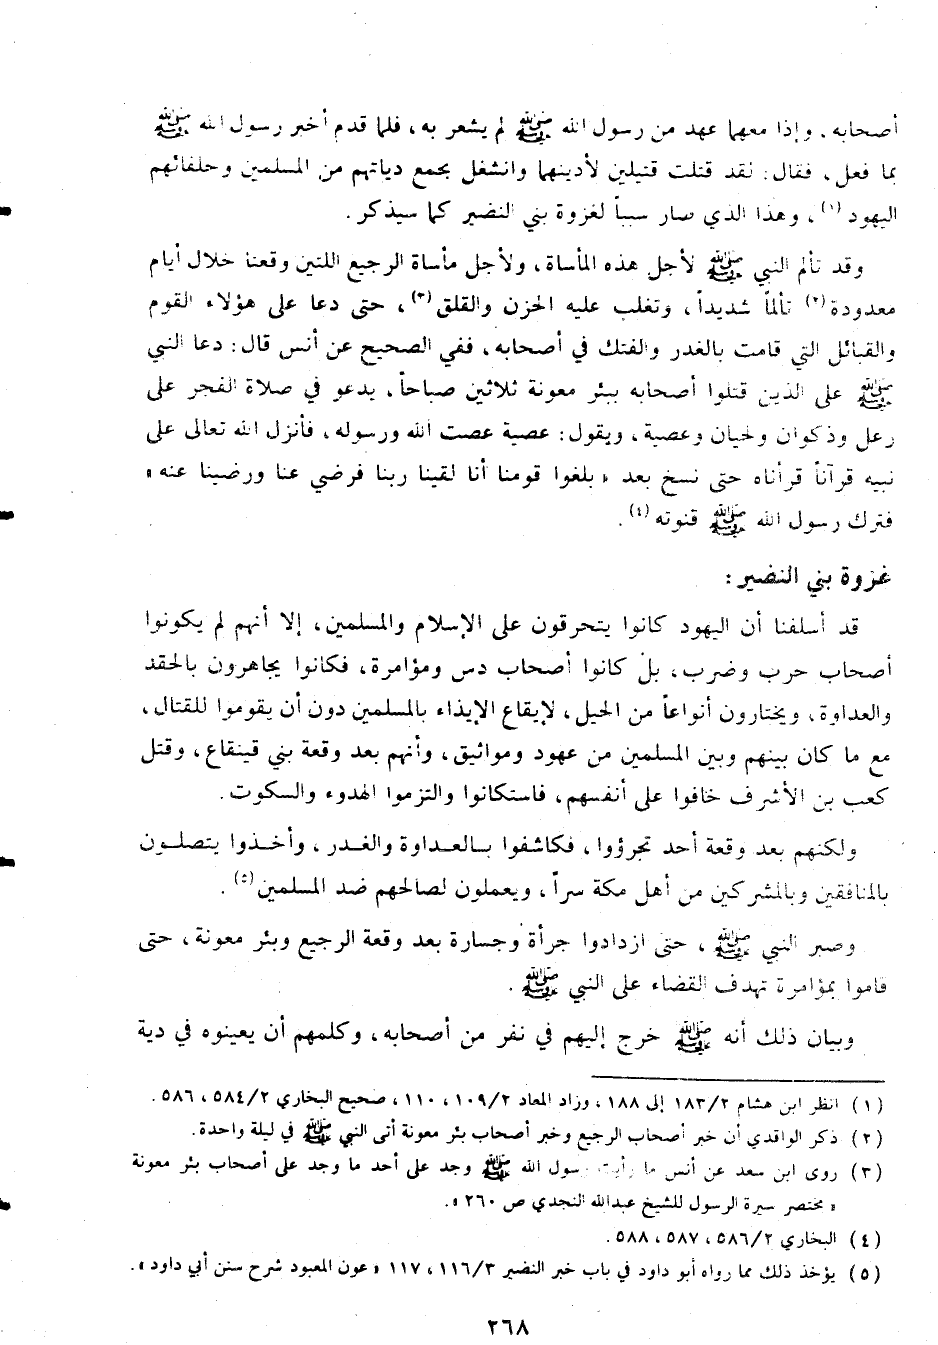 أصحابه. وإذا معهما عهد من رسول الله ﷺ لم يشعر به، فلما قدم أخبر رسول الله ﷺ
بما فعل، فقال: لقد قتلت قتيلين لأدينهما وانشغل بجمع دياتهم من المسلمين وحلفائهم
اليهود (١)، وهذا الذي صار سبباً لغزوة بني النضير كما سيذكر.
وقد تألم النبي ﷺ لأجل هذه المأساة، ولأجل مأساة الرجيع اللتين وقعتا خلال أيام
معدودة (٢) تألماً شديداً، وتغلب عليه الحزن والقلق (٣)، حتى دعا على هؤلاء القوم
والقبائل التي قامت بالغدر والفتك في أصحابه، ففي الصحيح عن أنس قال: دعا النبي
ﷺ على الذين قتلوا أصحابه ببئر معونة ثلاثين صباحاً، يدعو في صلاة الفجر على
رعل وذكوان ولحيان وعصية، ويقول: عصية عصت الله ورسوله، فأنزل الله تعالى على
نبيه قرآناً قرأناه حتى نسخ بعد « بلغوا قومنا أنا لقينا ربنا فرضي عنا ورضينا عنه »
فترك رسول الله ﷺ قنوته (٤).
غزوة بني النضير:
قد أسلفنا أن اليهود كانوا يتحرقون على الإسلام والمسلمين، إلا أنهم لم يكونوا
أصحاب حرب وضرب، بل كانوا أصحاب دس ومؤامرة، فكانوا يجاهرون بالحقد
والعداوة، ويختارون أنواعاً من الحيل، لإيقاع الإيذاء بالمسلمين دون أن يقوموا للقتال،
مع ما كان بينهم وبين المسلمين من عهود ومواثيق، وأنهم بعد وقعة بني قينقاع، وقتل
كعب بن الأشرف خافوا على أنفسهم، فاستكانوا والتزموا الهدوء والسكوت.
ولكنهم بعد وقعة أحد تجرؤوا، فكاشفوا بالعداوة والغدر، وأخذوا يتصلون
بالمنافقين وبالمشركين من أهل مكة سراً، ويعملون لصالحهم ضد المسلمين (٥).
وصبر النبي ﷺ، حتى ازدادوا جرأة وجسارة بعد وقعة الرجيع وبئر معونة، حتى
قاموا بمؤامرة تهدف القضاء على النبي ﷺ.
وبيان ذلك أنه ﷺ خرج إليهم في نفر من أصحابه، وكلمهم أن يعينوه في دية
(١) انظر ابن هشام ١٨٣/٢ إلى ١٨٨، وزاد المعاد ١٠٩/٢، ١١٠، صحيح البخاري ٥٨٤/٢، ٥٨٦.
(٢) ذكر الواقدي أن خبر أصحاب الرجيع وخبر أصحاب بئر معونة أتى النبي ﷺ في ليلة واحدة.
(٣) روى ابن سعد عن أنس ما رأيت رسول الله ﷺ وجد على أحد ما وجد على أصحاب بئر معونة
« مختصر سيرة الرسول للشيخ عبدالله النجدي ص ٢٦٠ ».
(٤) البخاري ٥٨٦/٢، ٥٨٧، ٥٨٨.
(٥) يؤخذ ذلك مما رواه أبو داود في باب خبر النضير ١١٦/٣، ١١٧ « عون المعبود شرح سنن أبي داود ».
٢٦٨